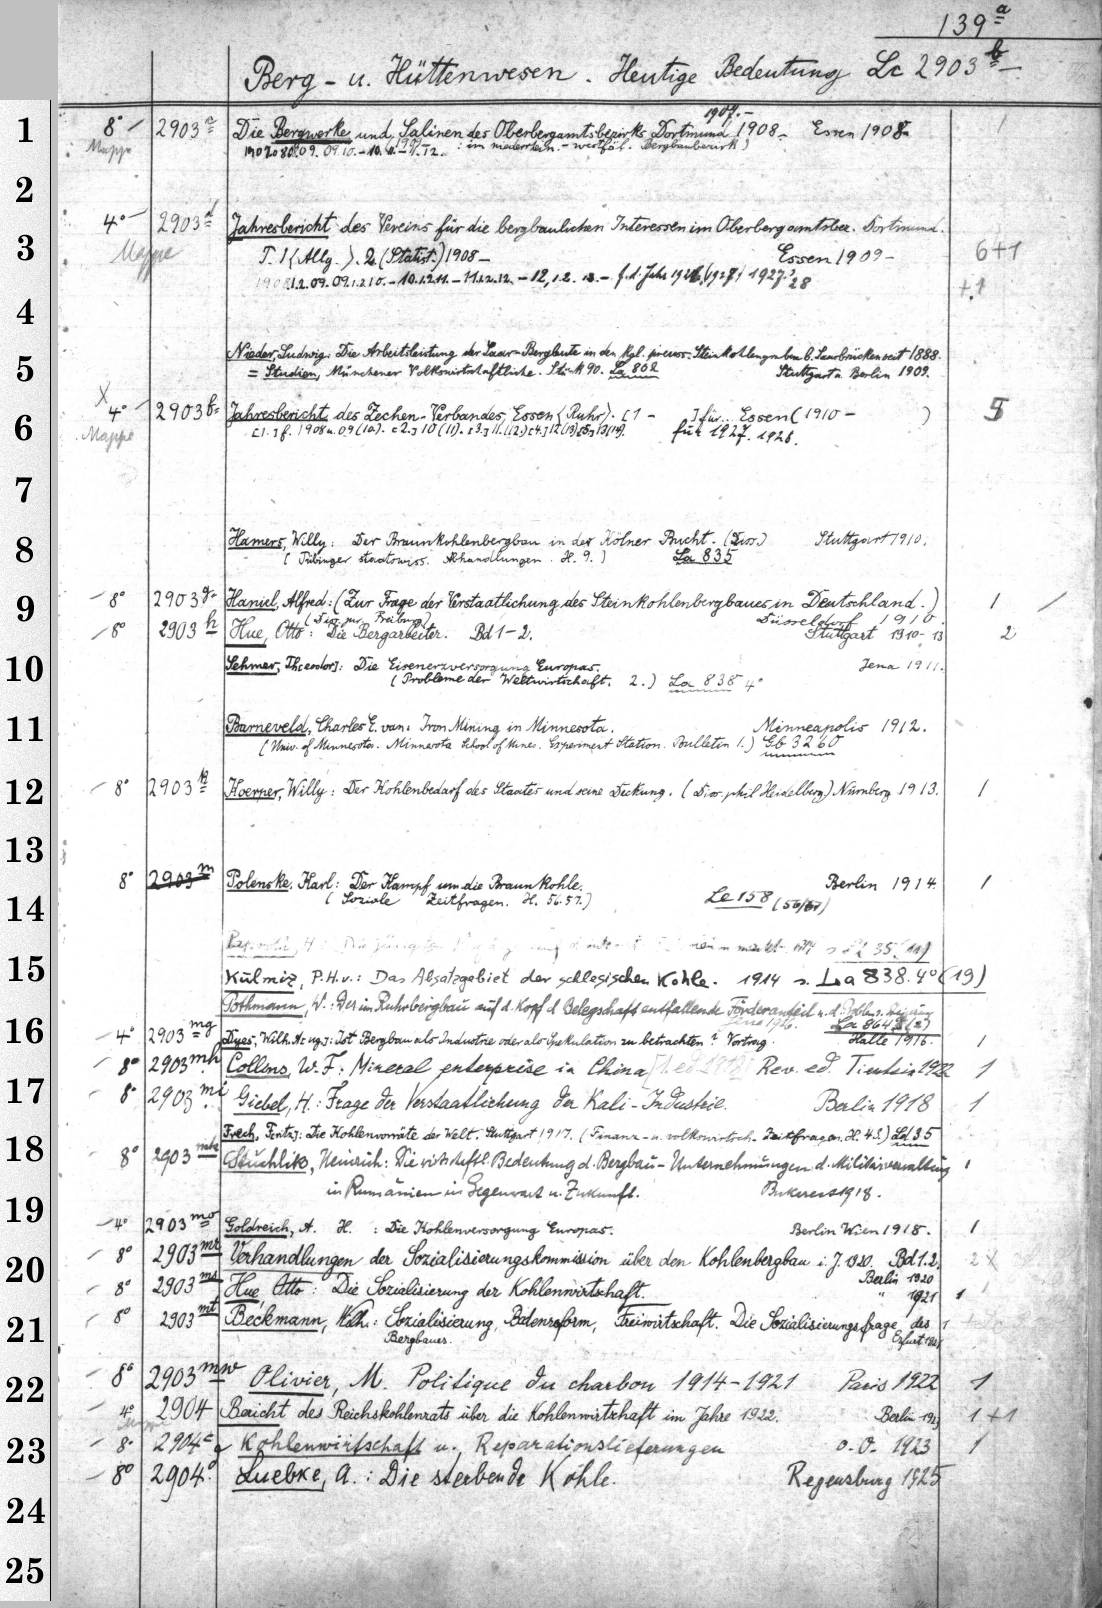 139 a
Berg- u. Hüttenwesen. Heutige Bedeutung Lc 2903 b
1 8° 2903 a Die Bergwerke und Salinen des Oberbergamtsbezirks Dortmund 1907.- 1908- Essen 1908- 1
Mappe : im niederrhein.-westfäl. Bergbaubezirk)
2
4° 2903 d Jahresbericht des Vereins für die bergbaulichen Interessen im Oberbergamtsbez. Dortmund.
3 Mappe T. 1 (Allg.). 2. (Statist.) 1908- Essen 1909- 6+1
1.2.09. 09.1.2 10.- 10.1.2 11.- 11.1.2.12.- 12,1.2. 13.- f. d. Jahr 1926 (1927) 1927/28 +1
4
Nieder, Ludwig: Die Arbeitsleistung der Saar-Bergleute in den Kgl. preuss. Steinkohlengruben b. Saarbrücken seit 1888.
5 = Studien, Münchener Volkswirtschaftliche. Stück 90. La 802 Stuttgart u. Berlin 1909.
X 4° 2903 f Jahresbericht des Zechen-Verbandes, Essen (Ruhr). [1 - ] für Essen (1910- ) 5
6 Mappe [1.] f. 1908 u. 09 (10). [2.] 10 (11). [3.] 11. (12.) [4.] 12 (13) [5.] 13 (14). für 1927. 1926.
7
Hamers, Willy: Der Braunkohlenbergbau in der Kölner Bucht. (Diss.) Stuttgart 1910.
8 (Tübinger staatswiss. Abhandlungen. H. 9.) La 835
9 8° 2903 g Haniel, Alfred: (Zur Frage der Verstaatlichung des Steinkohlenbergbaues in Deutschland.) 1
(Diss. jur. Freiburg) Düsseldorf 1910.
8° 2903 h Hue, Otto: Die Bergarbeiter. Bd 1-2. Stuttgart 1910-13 2
10 Sehmer, Theodor: Die Eisenerzversorgung Europas. Jena 1911.
(Probleme der Weltwirtschaft. 2.) La 838 4°
11 Barneveld, Charles E. van: Iron Mining in Minnesota. Minneapolis 1912.
(Univ. of Minnesota. Minnesota School of Mines. Experiment Station. Bulletin 1.) Gb 3260
12 8° 2903 k Koerper, Willy: Der Kohlenbedarf des Staates und seine Deckung. (Diss. phil Heidelberg) Nürnberg 1913. 1
13
8° 2903 m Polenske, Karl: Der Kampf um die Braunkohle. Berlin 1914. 1
14 (Soziale Zeitfragen. H. 56.57.) Le 158 (56/57)
15 Kulmiz, P.H.v.: Das Absatzgebiet der schlesischen Kohle. 1914 s. La 838. 4° (19)
Pothmann, W.: Der im Ruhrbergbau auf d. Kopf d. Belegschaft entfallende Förderanteil u. d.
Jena 1916. La 864
16 4° 2903 mg Dyes, Wilh. Aug.: Ist Bergbau als Industrie oder als Spekulation zu betrachten? Vortrag. Halle 1916. 1
8° 2903 mh Collins, W. F: Mineral enterprise in China Rev. ed. Tientsin 1922 1
17 8° 2903 mi Giebel, H.: Frage der Verstaatlichung der Kali-Industrie. Berlin 1918 1
Frech, Fritz: Die Kohlenvorräte der Welt. Stuttgart 1917. (Finanz- u. volkswirtsch. Zeitfragen. H. 43.) Ld 35
18 8° 2903 Stuchlik, Heinrich: Die wirtschaftl. Bedeutung d. Bergbau-Unternehmungen d. Militärverwaltung 1
in Rumänien in Gegenwart u. Zukunft. Bukarest 1918.
19 4° 2903 mo Goldreich, A. H.: Die Kohlenversorgung Europas. Berlin Wien 1918. 1
8° 2903 mr Verhandlungen der Sozialisierungskommission über den Kohlenbergbau i. J. 1920. Bd 1.2. 2 x
20 Berlin 1920
8° 2903 ms Hue, Otto: Die Sozialisierung der Kohlenwirtschaft. " 1921 1
21 8° 2903 mt Beckmann, Wilh.: Sozialisierung, Bodenreform, Freiwirtschaft. Die Sozialisierungsfrage des 1
Bergbaues. Erfurt 1921
22 8° 2903 mw Olivier, M. Politique du charbon 1914-1921 Paris 1922 1
4° 2904 Bericht des Reichskohlenrats über die Kohlenwirtschaft im Jahre 1922. Berlin 1923 1+1
23 8° 2904 c Kohlenwirtschaft u. Reparationslieferungen o. O. 1923 1
8° 2904 d Luebke, A.: Die sterbende Kohle. Regensburg 1925
24
25